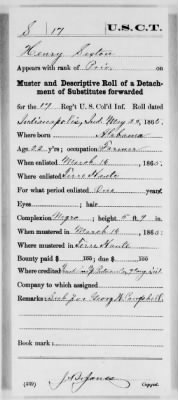 S | 17 | U.S.C.T.
Henry Sexton
Appears with rank of Priv. on
Muster and Descriptive Roll of a Detach-
ment of Substitutes forwarded
for the 17 Reg't U. S. Col'd Inf. Roll dated
Indianapolis, Ind. May 22, 1865.
Where born Alabama
Age 22 y'rs; occupation Farmer
When enlisted March 16, 1865.
Where enlisted Terre Haute
For what period enlisted One years.
Eyes ; hair
Complexion Negro ; height 5 ft. 9 in.
When mustered in March 16, 1865.
Where mustered in Terre Haute
Bounty paid $ 100; due $ 100
Where credited
Company to which assigned
Remarks: Sub. for George W. Campbell
Book mark:
J. B. Jones
(339) Copyist.